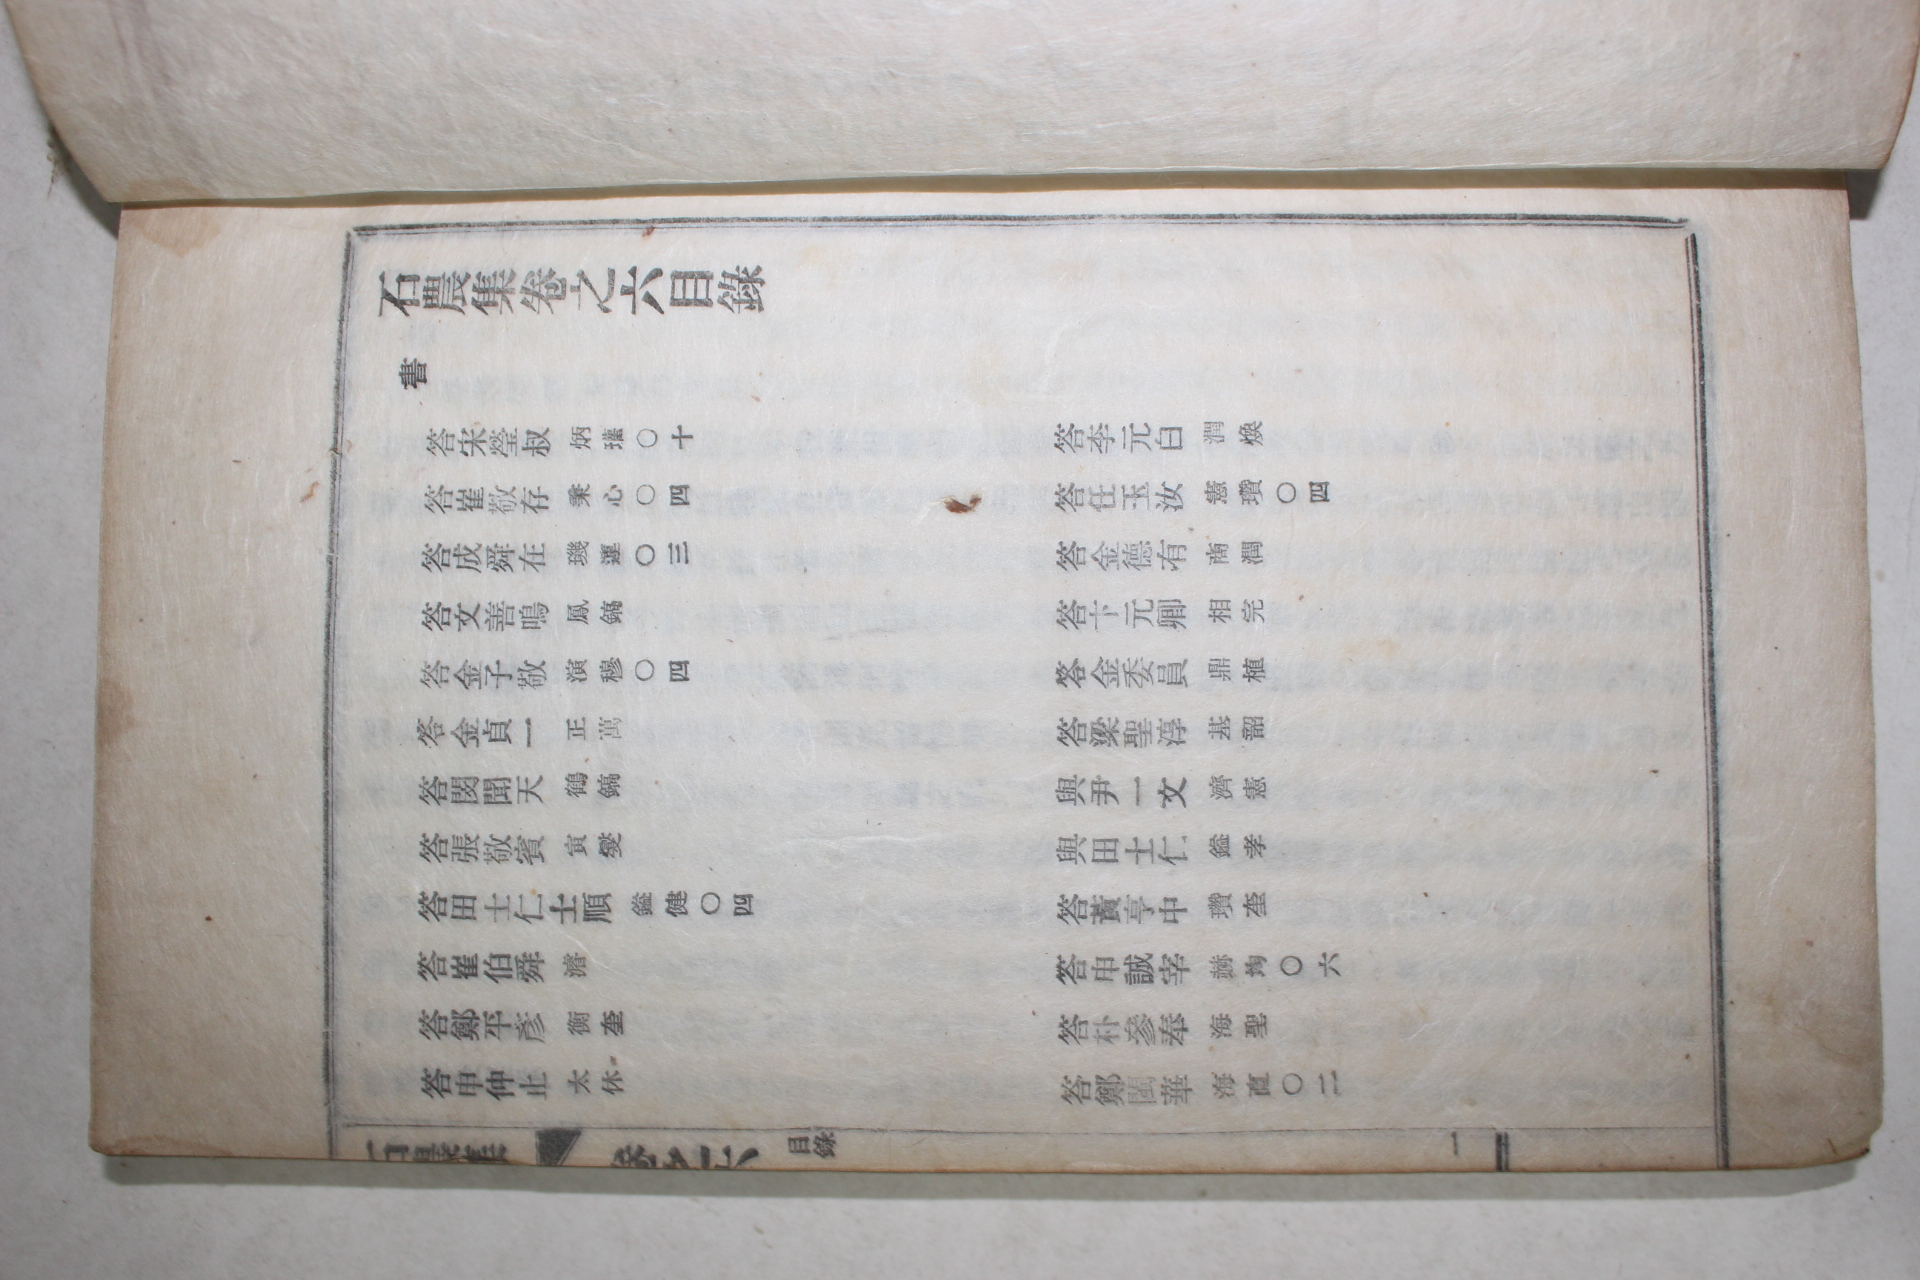 石農集卷之六目錄
書
答宋瑩叔 炳瓘〇十 答李元白 潤煥
答崔敬存 秉心〇四 答任玉汝 憲瓚〇四
答成舜在 璣運〇三 答金德有 商潤
答文善鳴 鳳鎬 答卞元卿 相完
答金子敬 演穆〇四 答金委員 鼎植
答金貞一 正萬 答梁聖淳 基韶
答閔聞天 鶴鎬 與尹一文 濟憲
答張敬賓 寅燮 與田士仁 鎰孝
答田士仁士順 鎰健〇四 答黃亨中 瓚奎
答崔伯舜 濬 答申誠宰 均〇六
答鄭平彥 衡奎 答朴參奉 海聖
答申仲止 太休 答鄭閨華 海直〇二
石農集 卷之六 目錄 一